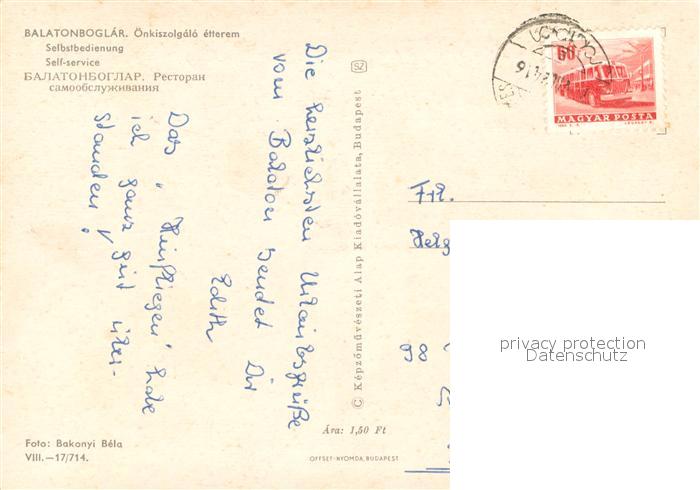 BALATONBOGLÁR. Önkiszolgáló étterem
Selbstbedienung
Self-service
БАЛАТОНБОГЛАР. Ресторан
самообслуживания
Die herzlichsten Urlaubsgrüße
vom Balaton sendet Dir
Edith
Das „Hinfliegen" habe
ich ganz gut über-
standen!
SZ
© Képzőművészeti Alap Kiadóvállalata, Budapest
60
MAGYAR POSTA
Frl.
Helg
98
privacy protection
Datenschutz
Ára: 1,50 Ft
Foto: Bakonyi Béla
VIII.—17/714.
OFFSET-NYOMDA, BUDAPEST